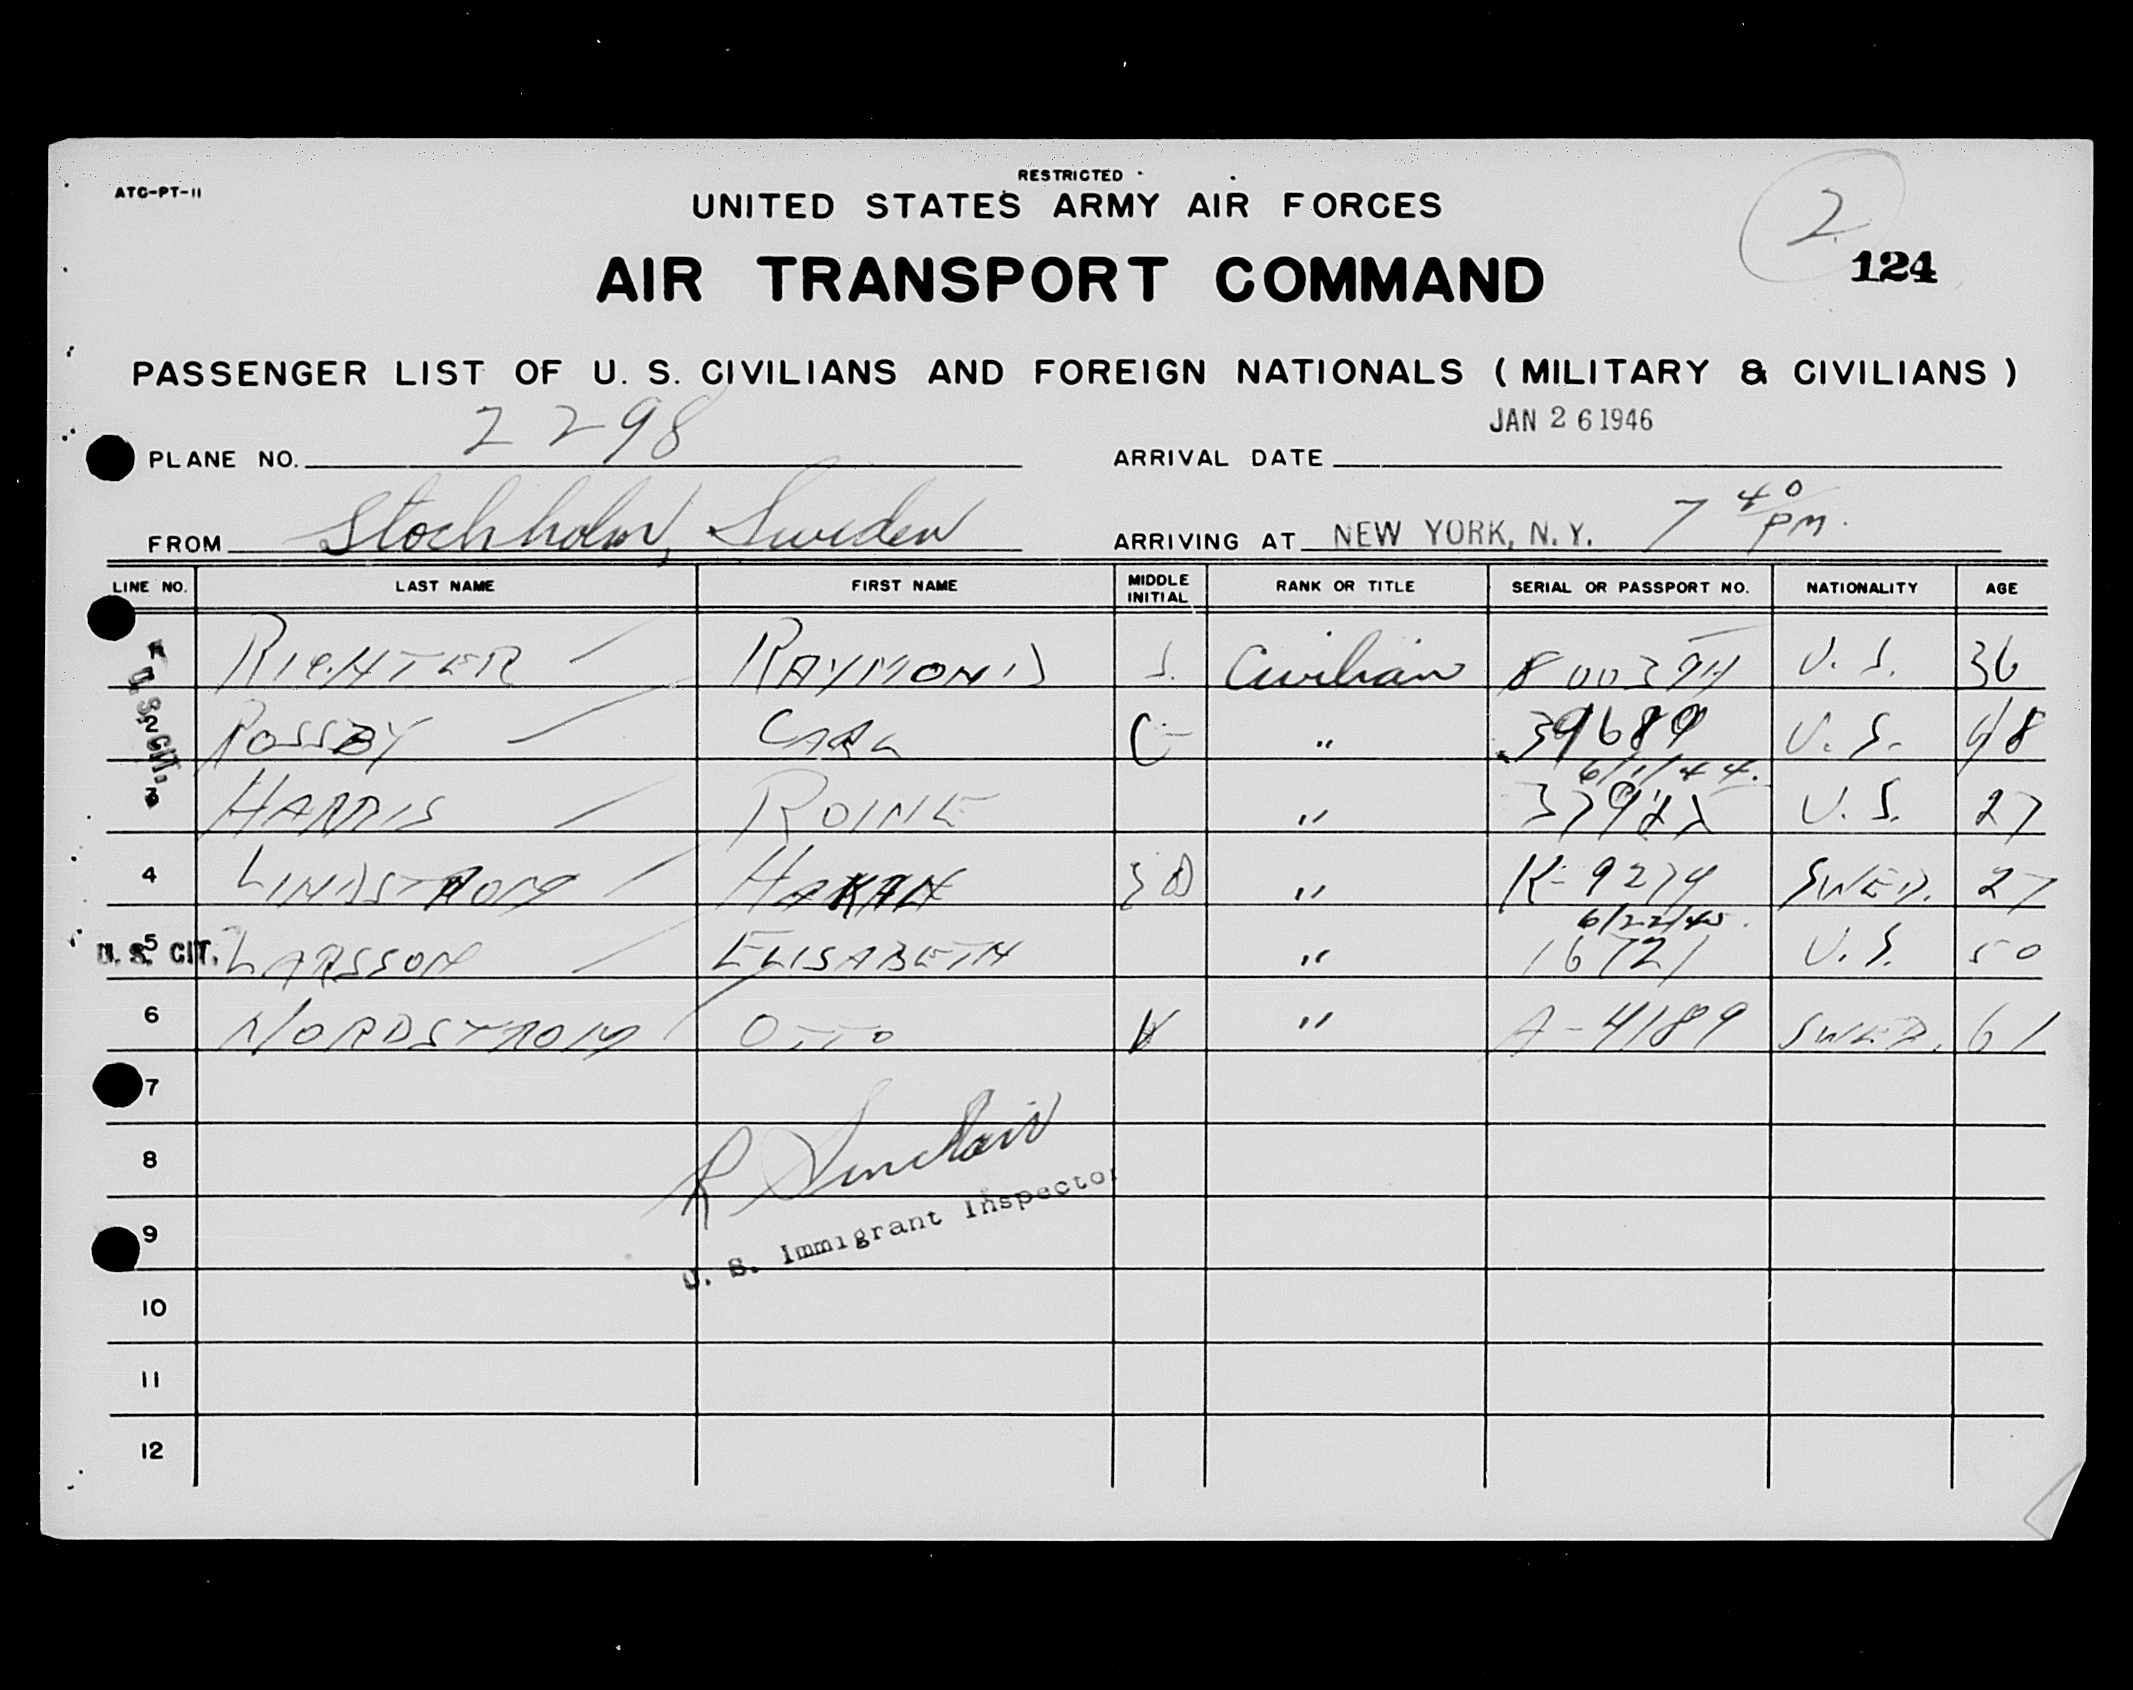 RESTRICTED
ATC-PT-11
UNITED STATES ARMY AIR FORCES
2
AIR TRANSPORT COMMAND
124
PASSENGER LIST OF U. S. CIVILIANS AND FOREIGN NATIONALS ( MILITARY & CIVILIANS )
PLANE NO. 2298 ARRIVAL DATE JAN 26 1946
FROM Stockholm, Sweden ARRIVING AT NEW YORK, N. Y. 7 40 PM.
LINE NO. LAST NAME FIRST NAME MIDDLE INITIAL RANK OR TITLE SERIAL OR PASSPORT NO. NATIONALITY AGE
U. S. CIT.
RICHTER RAYMOND J. Civilian U. S. 36
2 ROSSBY CARL C " 39689 U. S. 48
6/1/44.
3 HARRIS ROINE " U. S. 27
4 LINDSTROM HAKAN " K-9274 SWED. 27
6/22/45.
U. S. CIT. 5 LARSSON ELISABETH " 16721 U. S. 50
6 NORDSTROM OTTO " A-4189 SWED. 61
7
R Sinclair
8
U. S. Immigrant Inspector
9
10
11
12